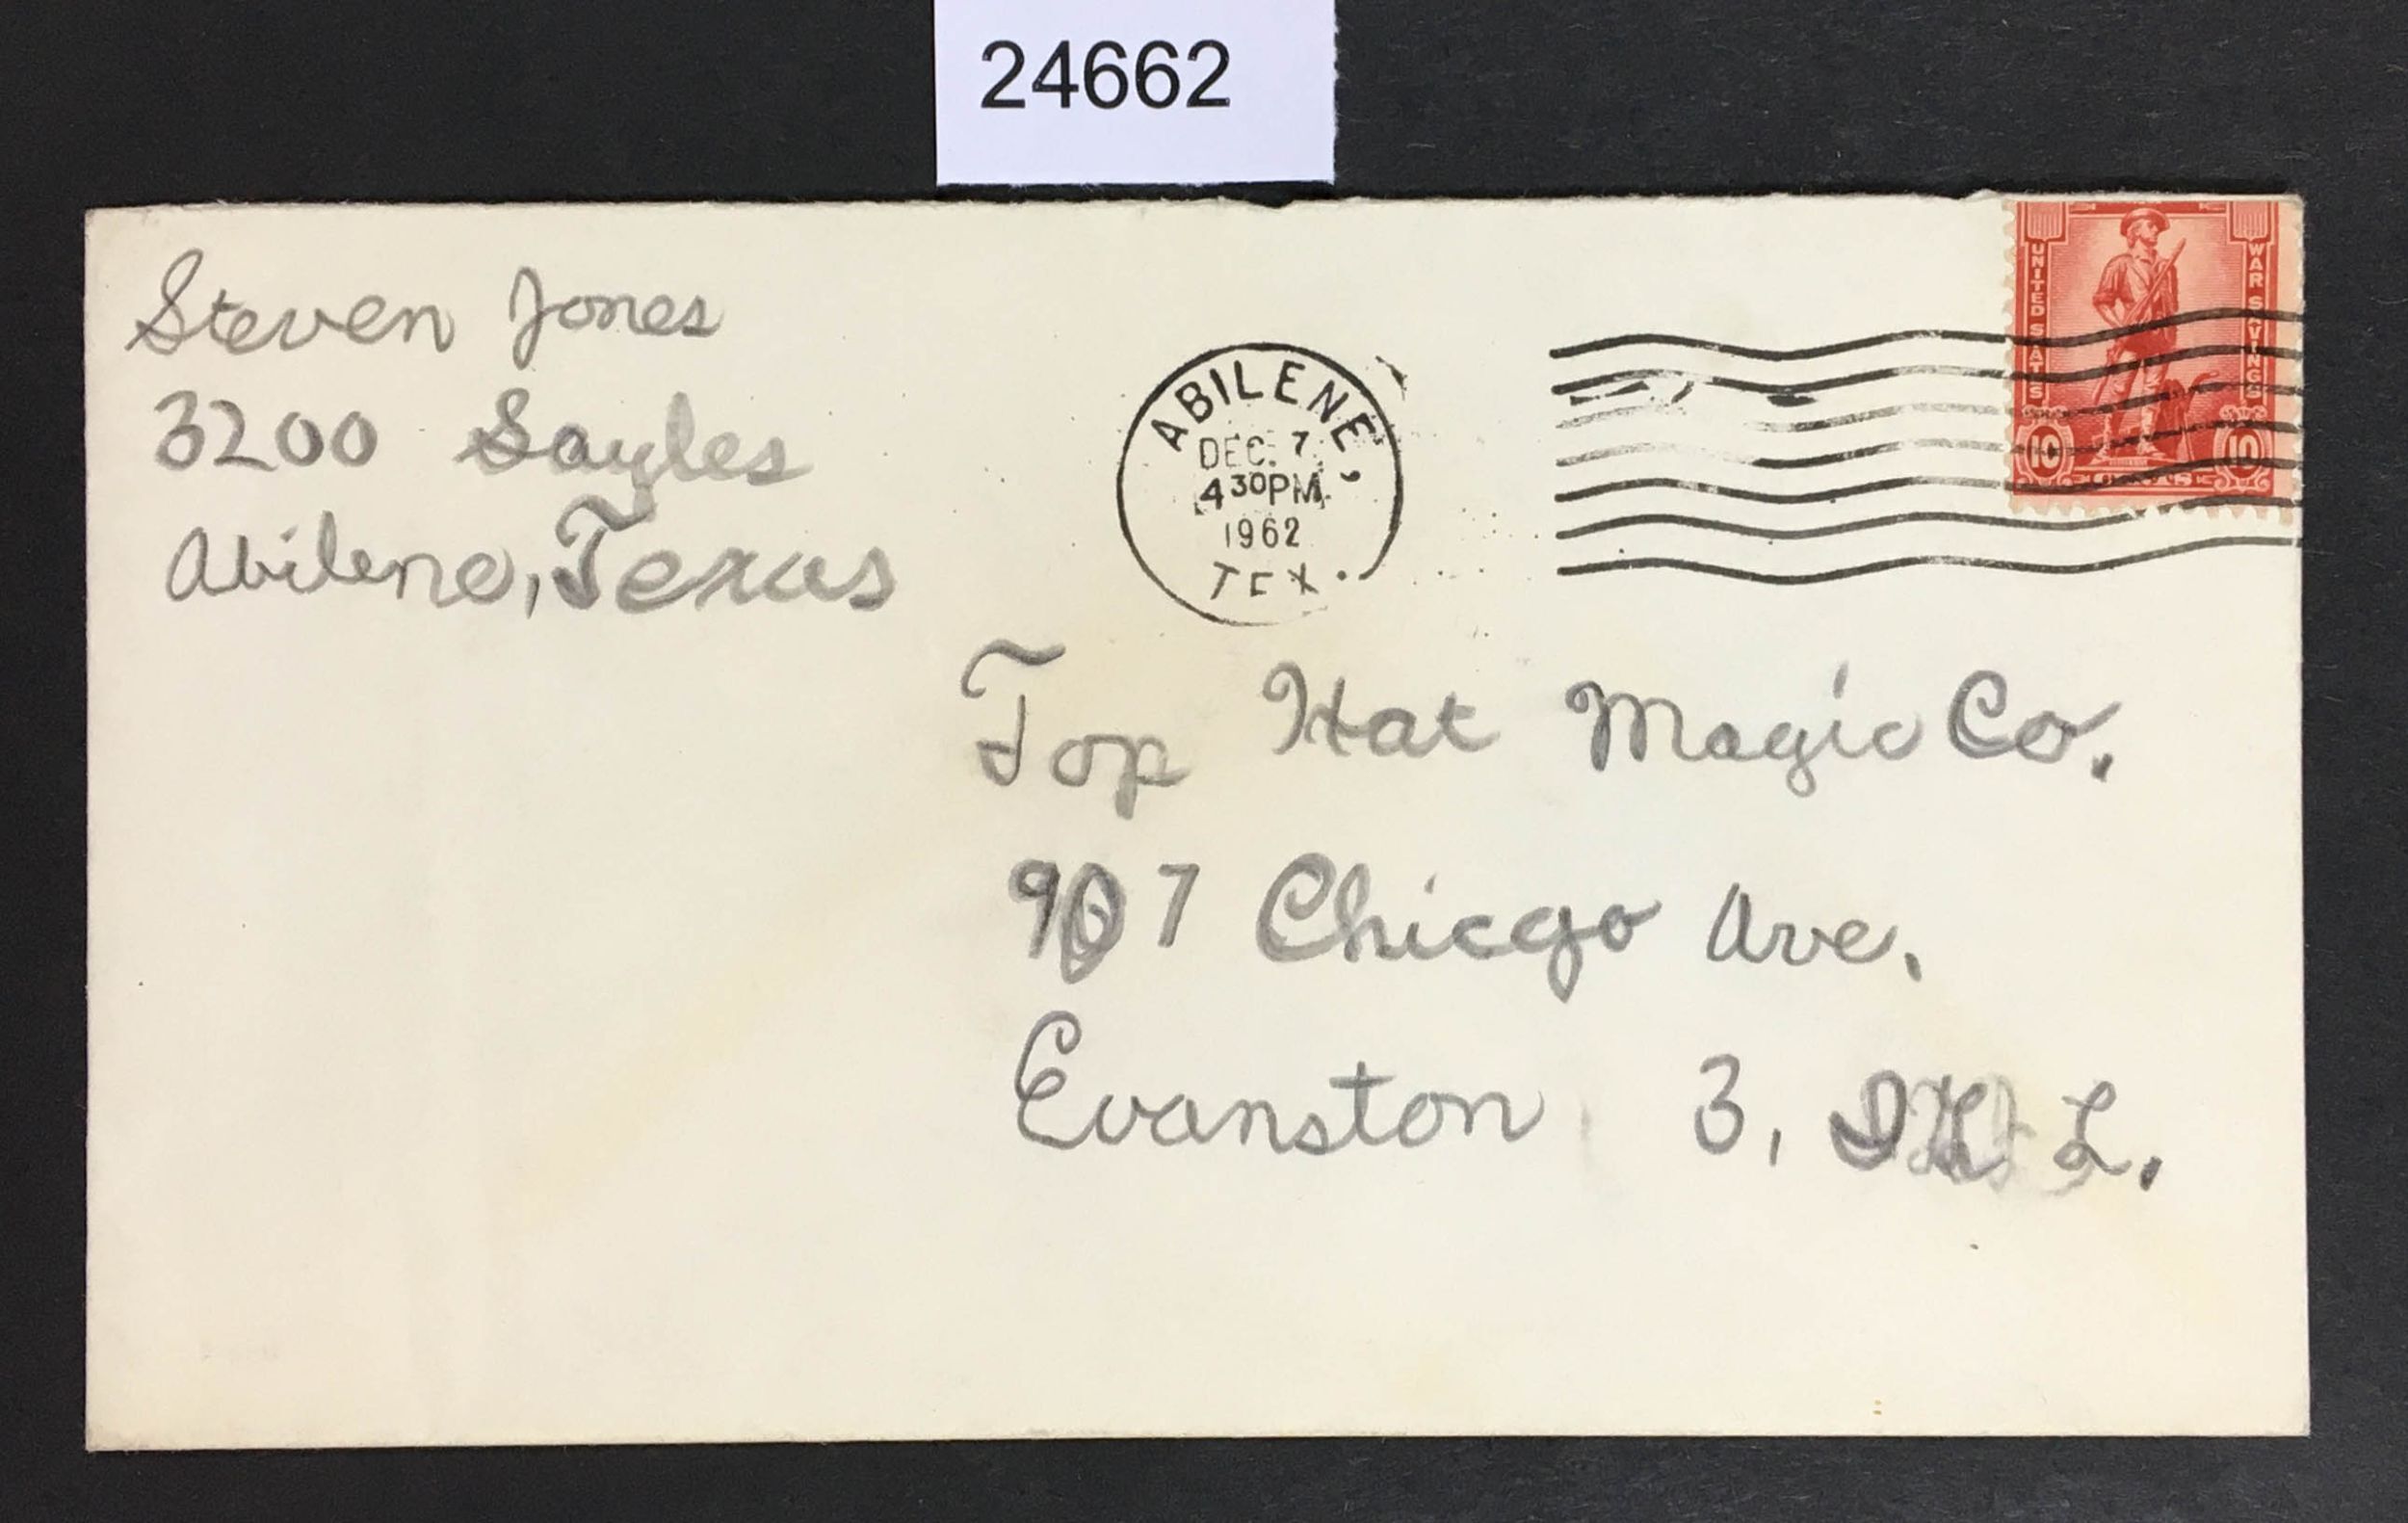 24662
Steven Jones
3200 Sayles
Abilene, Texas
ABILENE,
DEC. 7
4 30 PM
1962
TEX.
UNITED STATES
WAR SAVINGS
10
10
Top Hat Magic Co.
907 Chicgo Ave.
Evanston 3,